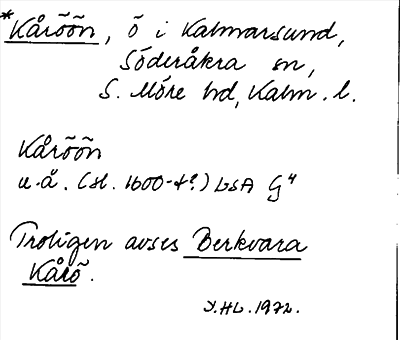 *Kåröön, ö i Kalmarsund,
Söderåkra sn,
S. Möre hd, Kalm. l.
Kåröön
u. å. (sl. 1600-t?) LSA G4
Troligen avses Berkvara
Kårö.
Y.HL.1972.